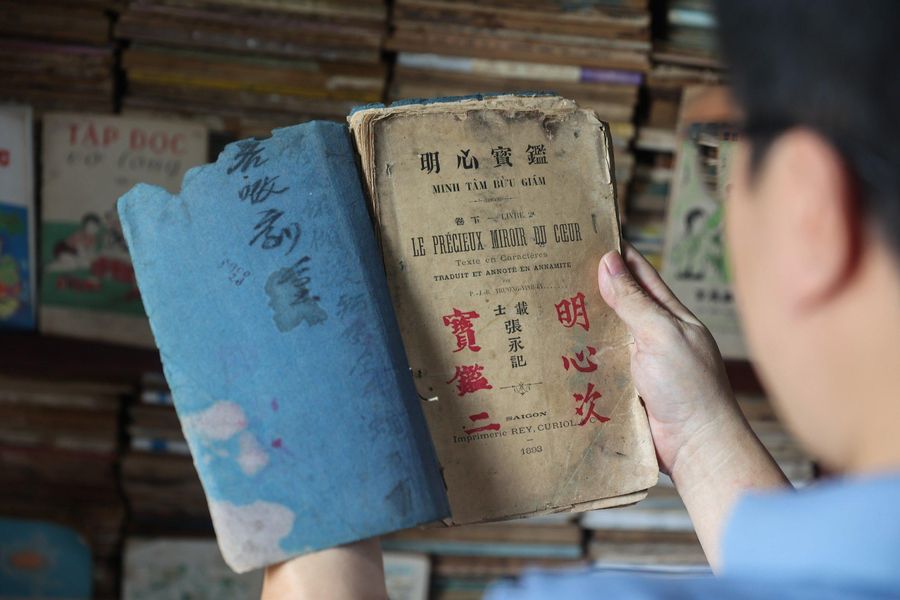 TẬP ĐỌC
vỡ lòng
明心寶鑑
MINH TÂM BỬU GIÁM
卷下 — LIVRE 2
LE PRÉCIEUX MIROIR DU CŒUR
Texte en Caractères
TRADUIT ET ANNOTÉ EN ANNAMITE
PAR
P.-J.-B. TRUONG-VINH-KÝ
士載
張永記
明心次
寶鑑二
SAIGON
Imprimerie REY, CURIOL
1893